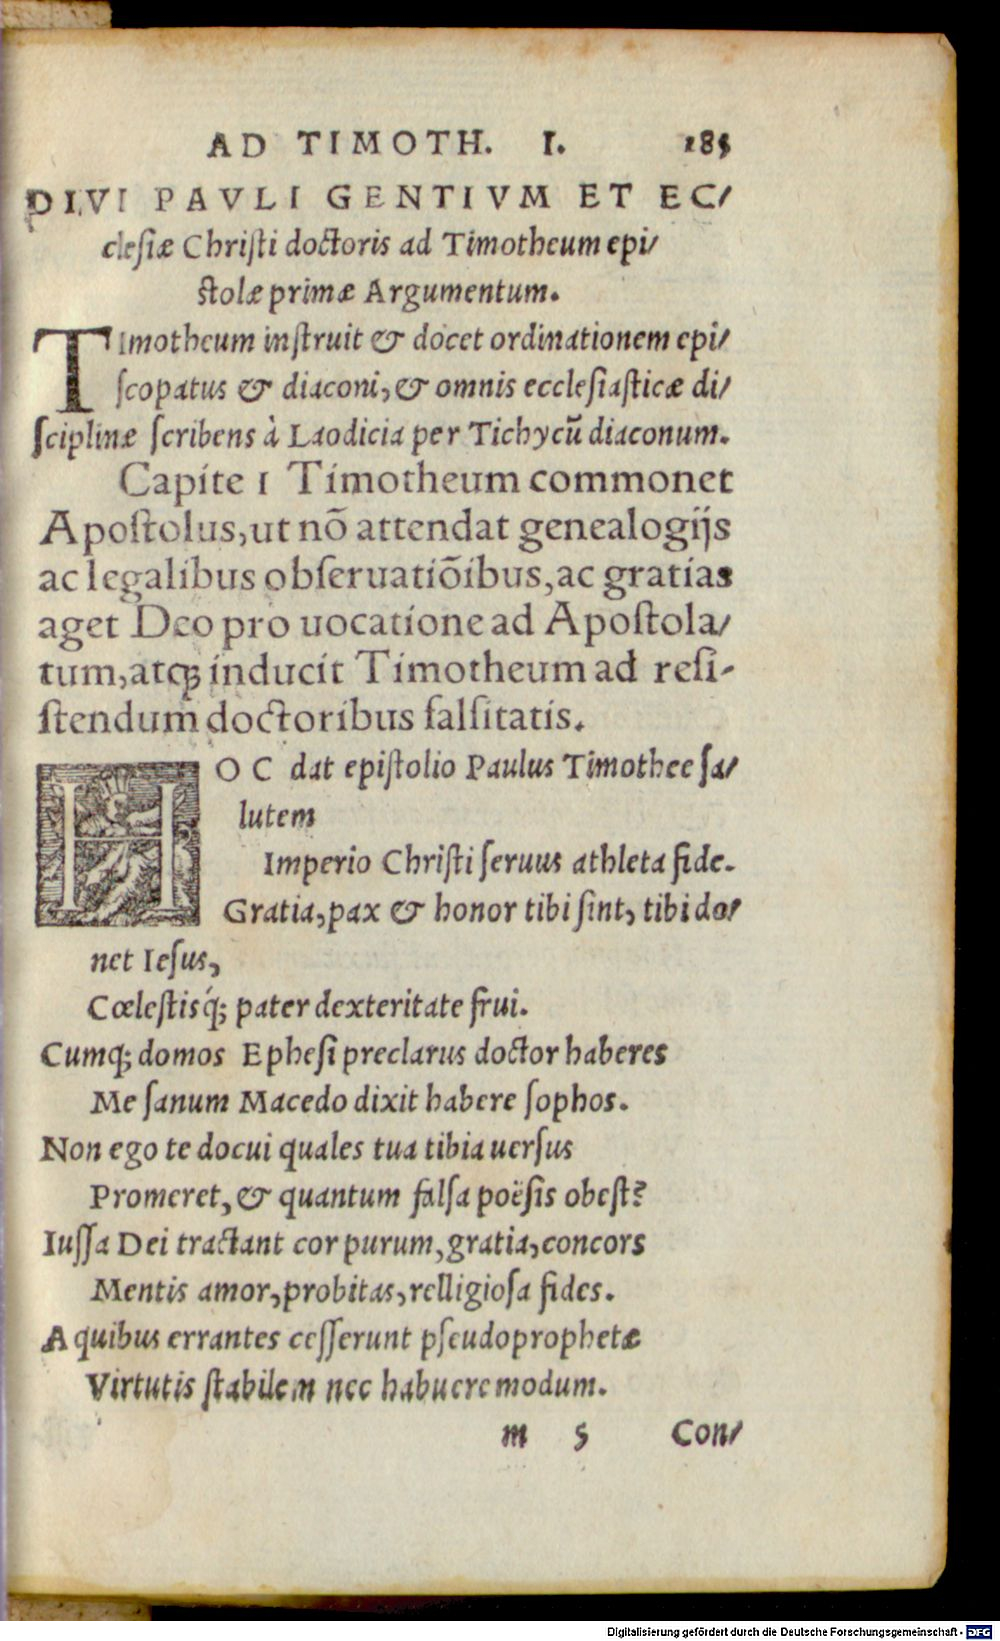 AD TIMOTH. I. 185
DIVI PAVLI GENTIVM ET EC/
clesiæ Christi doctoris ad Timotheum epi/
stolæ primæ Argumentum.
Timotheum instruit & docet ordinationem epi/
scopatus & diaconi, & omnis ecclesiasticæ di/
sciplinæ scribens à Laodicia per Tichycũ diaconum.
Capite 1 Timotheum commonet
Apostolus, ut nõ attendat genealogijs
ac legalibus obseruatiõibus, ac gratias
aget Deo pro uocatione ad Apostola/
tum, atq; inducit Timotheum ad resi-
stendum doctoribus falsitatis.
HOC dat epistolio Paulus Timothee sa/
lutem
Imperio Christi seruus athleta fide.
Gratia, pax & honor tibi sint, tibi do/
net Iesus,
Cœlestisq́; pater dexteritate frui.
Cumq; domos Ephesi preclarus doctor haberes
Me sanum Macedo dixit habere sophos.
Non ego te docui quales tua tibia uersus
Promeret, & quantum falsa poësis obest?
Iussa Dei tractant cor purum, gratia, concors
Mentis amor, probitas, relligiosa fides.
A quibus errantes cesserunt pseudoprophetæ
Virtutis stabilem nec habuere modum.
m 5 Con/
Digitalisierung gefördert durch die Deutsche Forschungsgemeinschaft - DFG